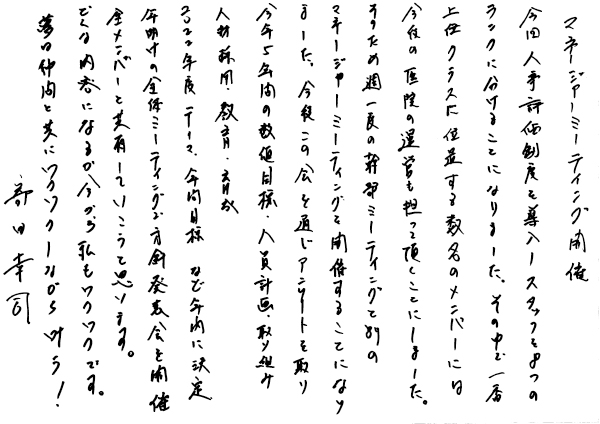 マネージャーミーティング開催
今回人事評価制度を導入しスタッフを8つの
ランクに分けることになりました。その中で一番
上位クラスに位置する数名のメンバーには
今後の医院の運営も担って頂くことにしました。
そのため週一度の幹部ミーティングと別の
マネージャーミーティングを開催することになり
ました。今後この会を通じアンケートを取り
今年5年間の数値目標・人員計画・取り組み
人材採用・教育・育成
2022年度 テーマ、年間目標 など年内に決定
年明けの全体ミーティングで方針発表会を開催
全メンバーと共有していこうと思います。
どんな内容になるか今から私もワクワクです。
夢を仲間と共にワクワクしながら叶う!
部田幸司